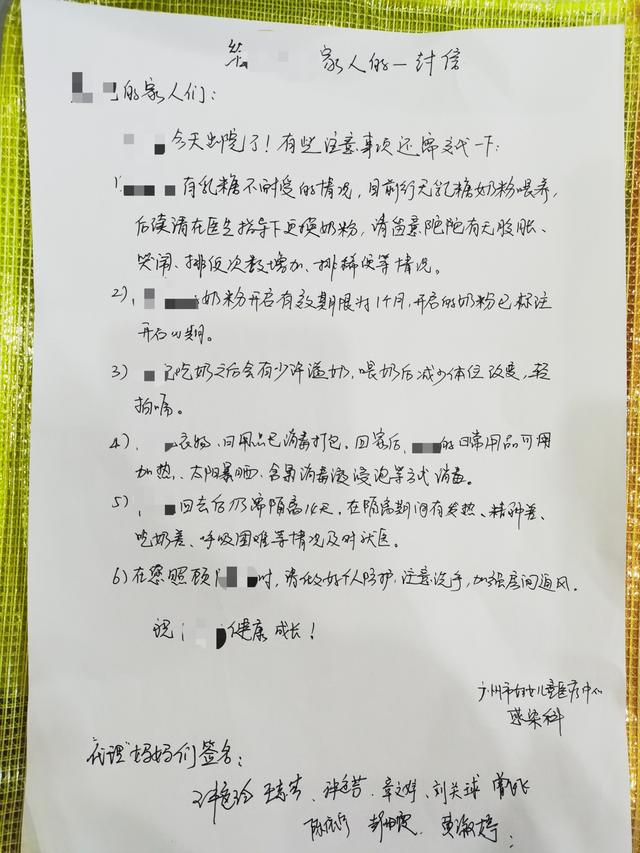 给 家人的一封信
的家人们：
今天出院了！有些注意事项还需交代一下：
1） 有乳糖不耐受的情况，目前行无乳糖奶粉喂养，
后续请在医生指导下更换奶粉，请留意陀陀有无腹胀、
哭闹、排便次数增加、排稀便等情况。
2）、 奶粉开启有效期限为1个月，开启的奶粉已标注
开启日期。
3） 吃奶之后会有少许溢奶，喂奶后减少体位改变，轻
拍嗝。
4）、 衣物、日用品已消毒打包。回家后， 的日常用品可用
加热、太阳暴晒、含氯消毒液浸泡等方式消毒。
5）、 回去后仍需隔离14天，在隔离期间有发热、精神差、
吃奶差、呼吸困难等情况及时就医。
6）在您照顾 时，请做好个人防护，注意洗手，加强房间通风。
祝 健康成长！
广州市妇女儿童医疗中心
感染科
代理“妈妈”们签名：
章文婷、刘关球
黄淑婷